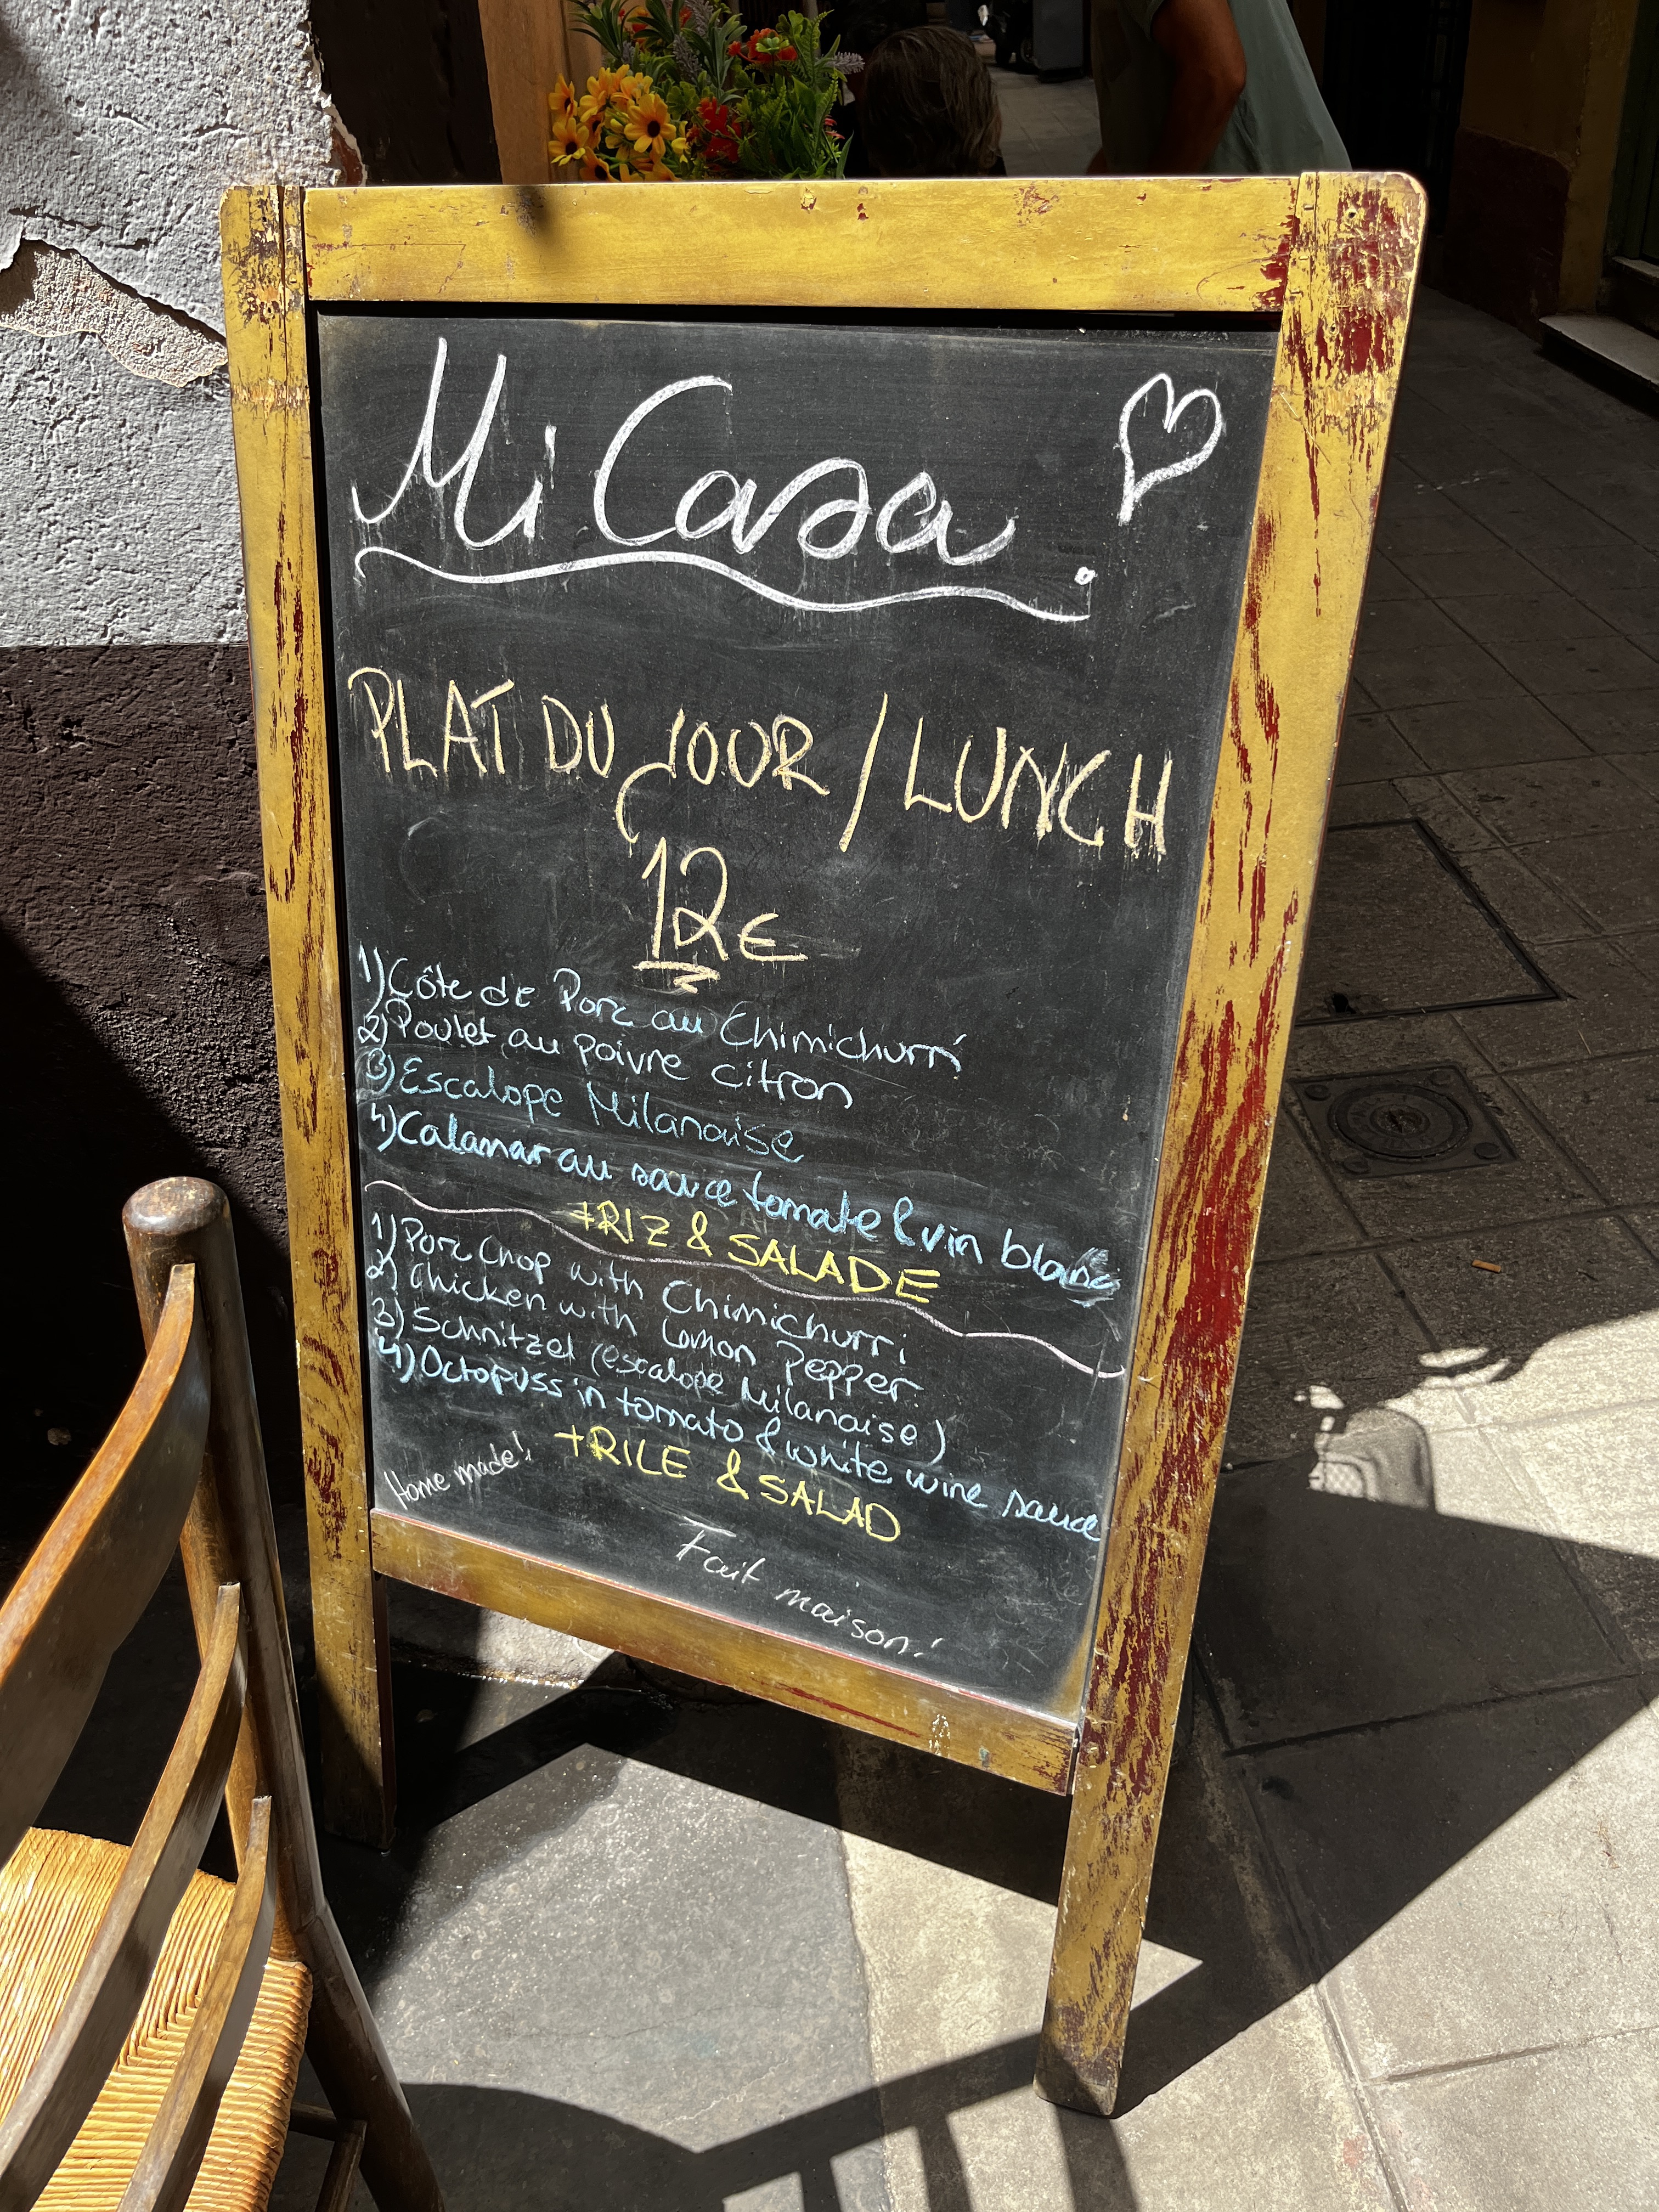 Mi Casa.
PLAT DU JOUR / LUNCH
12€
1) Côte de Porc au Chimichurri
2) Poulet au poivre citron
3) Escalope Milanaise
4) Calamar au sauce tomate & vin blanc
+RIZ & SALADE
1) Porc Chop with Chimichurri
2) Chicken with Lemon Pepper
3) Schnitzel (escalope Milanaise)
4) Octopuss in tomato & white wine sauce
+RICE & SALAD
Home made!
Fait maison!